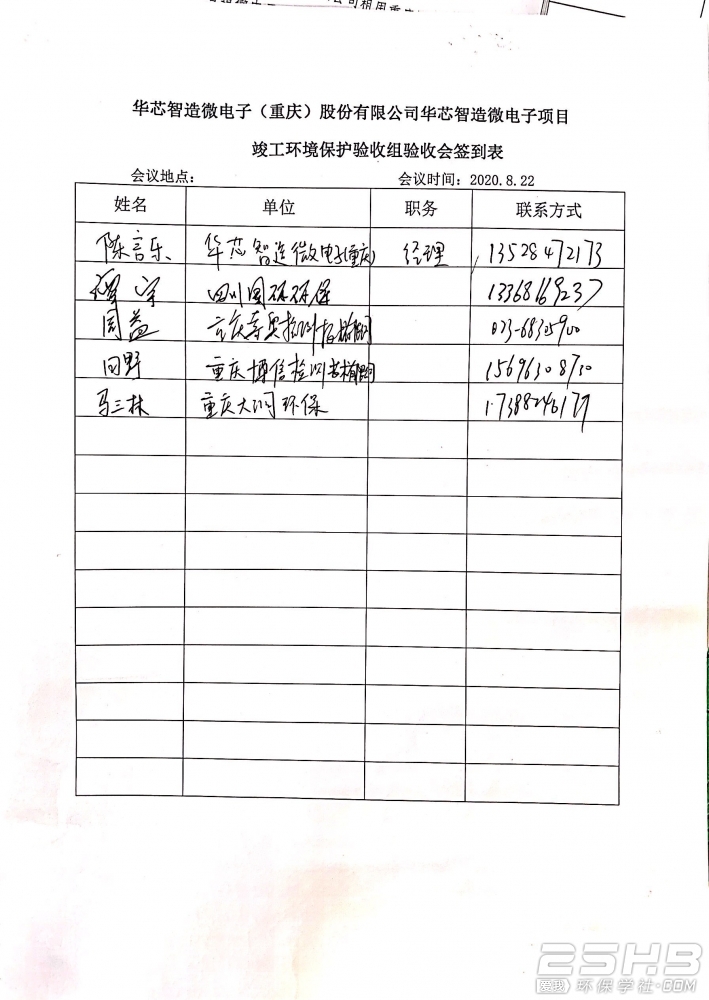 华芯智造微电子（重庆）股份有限公司华芯智造微电子项目
竣工环境保护验收组验收会签到表
会议地点： 会议时间：2020.8.22
姓名 单位 职务 联系方式
陈言乐 华芯智造微电子(重庆) 经理 13528472173
四川国环环保 13368169237
周益 023-6835900
田野 重庆博信检测 15696308730
马三林 重庆大润环保 17388246179
25HB
爱我 环保学社.COM